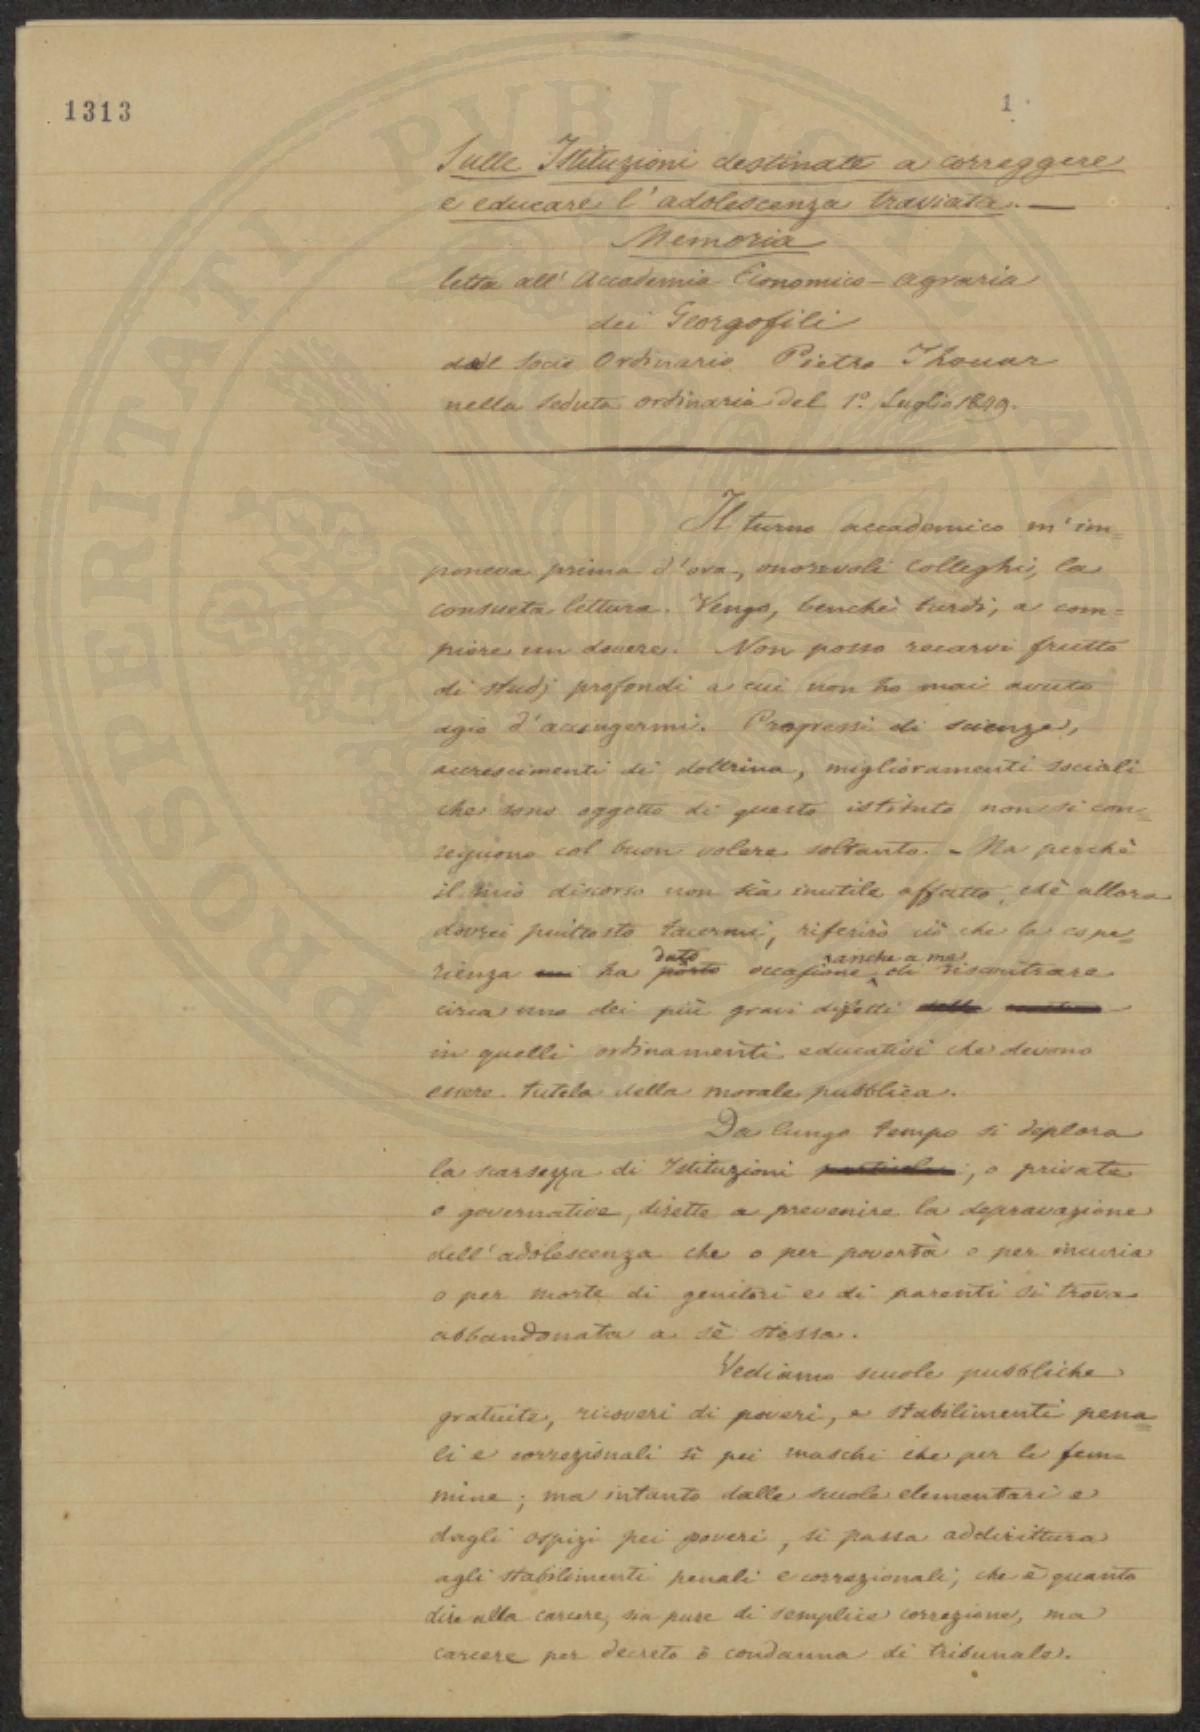 1313
1
Sulle Istituzioni destinate a correggere
e educare l'adolescenza traviata. —
Memoria
letta all' Accademia Economico-agraria
dei Georgofili
dal Socio Ordinario Pietro Thouar
nella seduta ordinaria del 1.º Luglio 1849.
Il turno accademico m'im=
poneva prima d'ora, onorevoli Colleghi, la
consueta lettura. Vengo, benchè tardi, a com=
piere un dovere. Non posso recarvi frutto
di studj profondi a cui non ho mai avuto
agio d'accingermi. Progressi di scienze,
accrescimenti di dottrina, miglioramenti sociali
che sono oggetto di questo istituto non si con=
seguono col buon volere soltanto. - Ma perchè
il mio discorso non sia inutile affatto, chè allora
dovrei piuttosto tacermi, riferirò ciò che la espe=
dato anche a me
rienza ha porto occasione di riscontrare
circa uno dei più gravi difetti
in quelli ordinamenti educativi che devono
essere tutela della morale pubblica.
Da lungo tempo si deplora
la scarsezza di Istituzioni particolari, o private
o governative, dirette a prevenire la depravazione
dell'adolescenza che o per povertà o per incuria
o per morte di genitori e di parenti si trova
abbandonata a sè stessa.
Vediamo scuole pubbliche
gratuite, ricoveri di poveri, e stabilimenti pena=
li e correzionali sì pei maschi che per le fem=
mine; ma intanto dalle scuole elementari e
dagli ospizi pei poveri, si passa addirittura
agli stabilimenti penali e correzionali; che è quanto
dire alla carcere, sia pure di semplice correzione, ma
carcere per decreto o condanna di tribunale.
PROSPERITATI PUBLICAE AUGENDAE